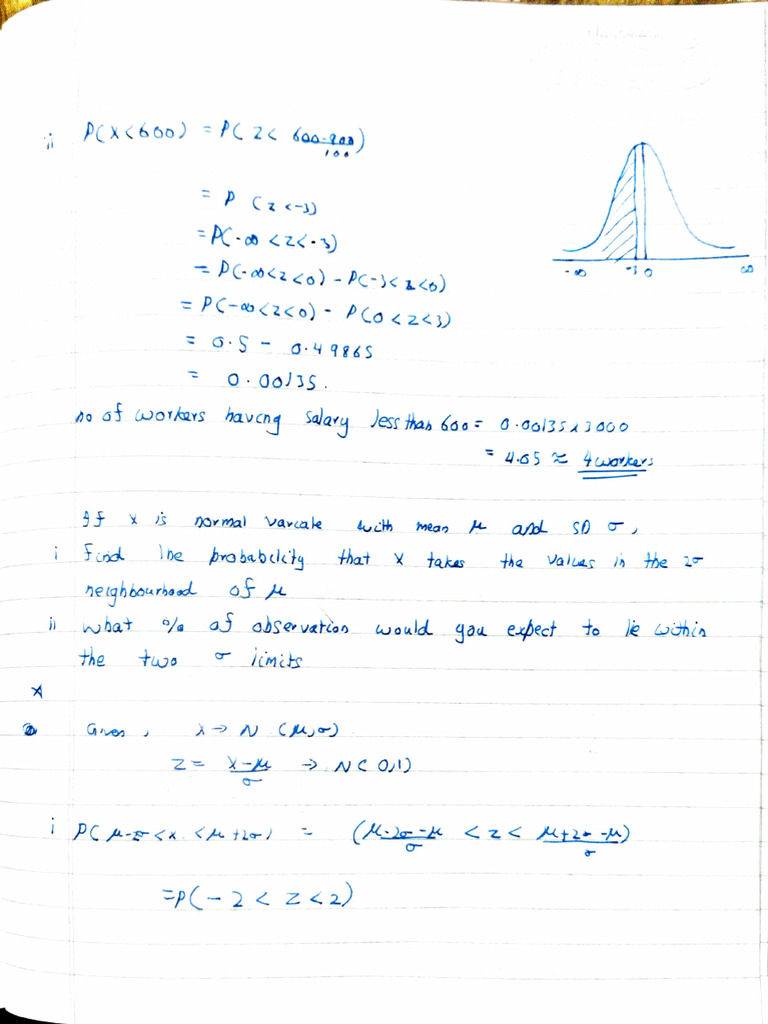 ii P(X<600) = P(Z< 600-900/100)
= P (Z <-3)
= P(-∞ <Z<-3)
= P(-∞<Z<0) - P(-3<Z<0)
= P(-∞<Z<0) - P(0<Z<3)
-∞ -3 0 ∞
= 0.5 - 0.49865
= 0.00135.
no of workers having salary less than 600 = 0.00135x3000
= 4.05 ≈ 4 workers
If X is normal variate with mean μ and SD σ,
i Find the probability that X takes the values in the 2σ
neighbourhood of μ
ii What % of observation would you expect to lie within
the two σ limits
Given, X → N (μ,σ)
Z = X-μ/σ → N(0,1)
i P(μ-σ<X<μ+2σ) = (μ-2σ-μ/σ <Z< μ+2σ-μ/σ)
=P(-2 < Z <2)